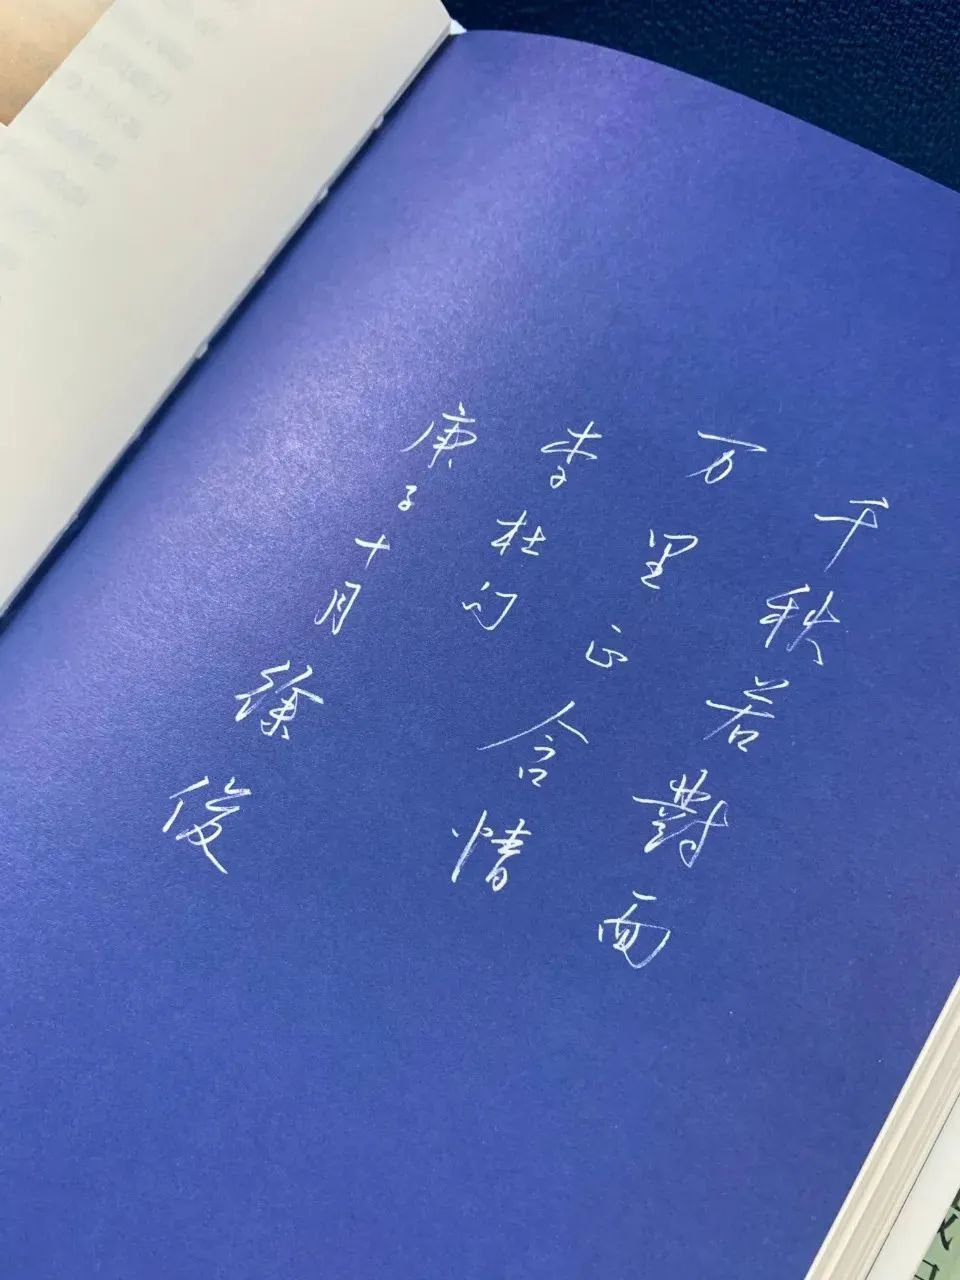 千秋若對面
万里正含情
李杜句
庚子十月徐俊